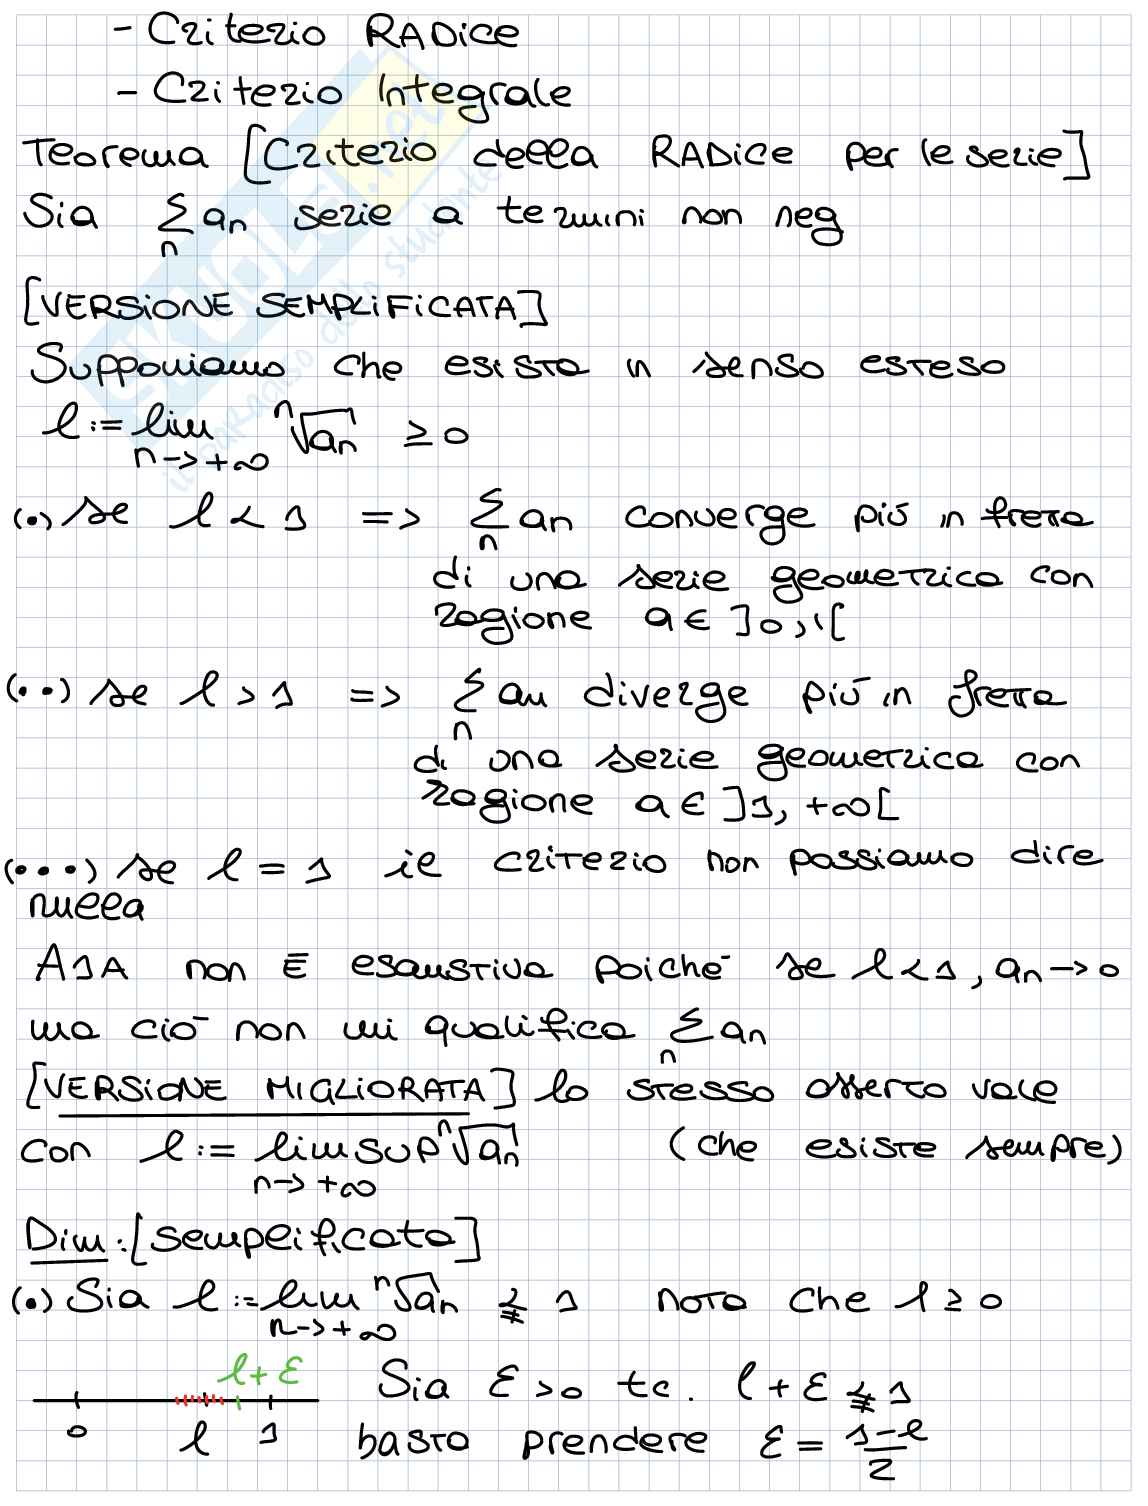 - Criterio RADice
- Criterio Integrale
Teorema [Criterio della RADice per le serie]
Sia Σ_n a_n serie a termini non neg
[VERSIONE SEMPLIFICATA]
Supponiamo che esista in senso esteso
l := lim_{n->+∞} ⁿ√a_n ≥ 0
(•) se l < 1 => Σ_n a_n converge più in fretta
di una serie geometrica con
ragione a ∈ ]0,1[
(••) se l > 1 => Σ_n a_n diverge più in fretta
di una serie geometrica con
ragione a ∈ ]1, +∞[
(•••) se l = 1 il criterio non possiamo dire
nulla
A1A non È esaustiva poiché se l < 1, a_n -> 0
ma ciò non mi qualifica Σ_n a_n
[VERSIONE MIGLIORATA] lo stesso asserto vale
con l := limsup_{n->+∞} ⁿ√a_n (che esiste sempre)
Dim: [semplificata]
(•) Sia l := lim_{n->+∞} ⁿ√a_n ≨ 1 noto che l ≥ 0
l + ε
0 l 1
Sia ε > 0 tc. l + ε ≨ 1
basta prendere ε = (1-l)/2
SKUOLA.net
il paradiso dello studente